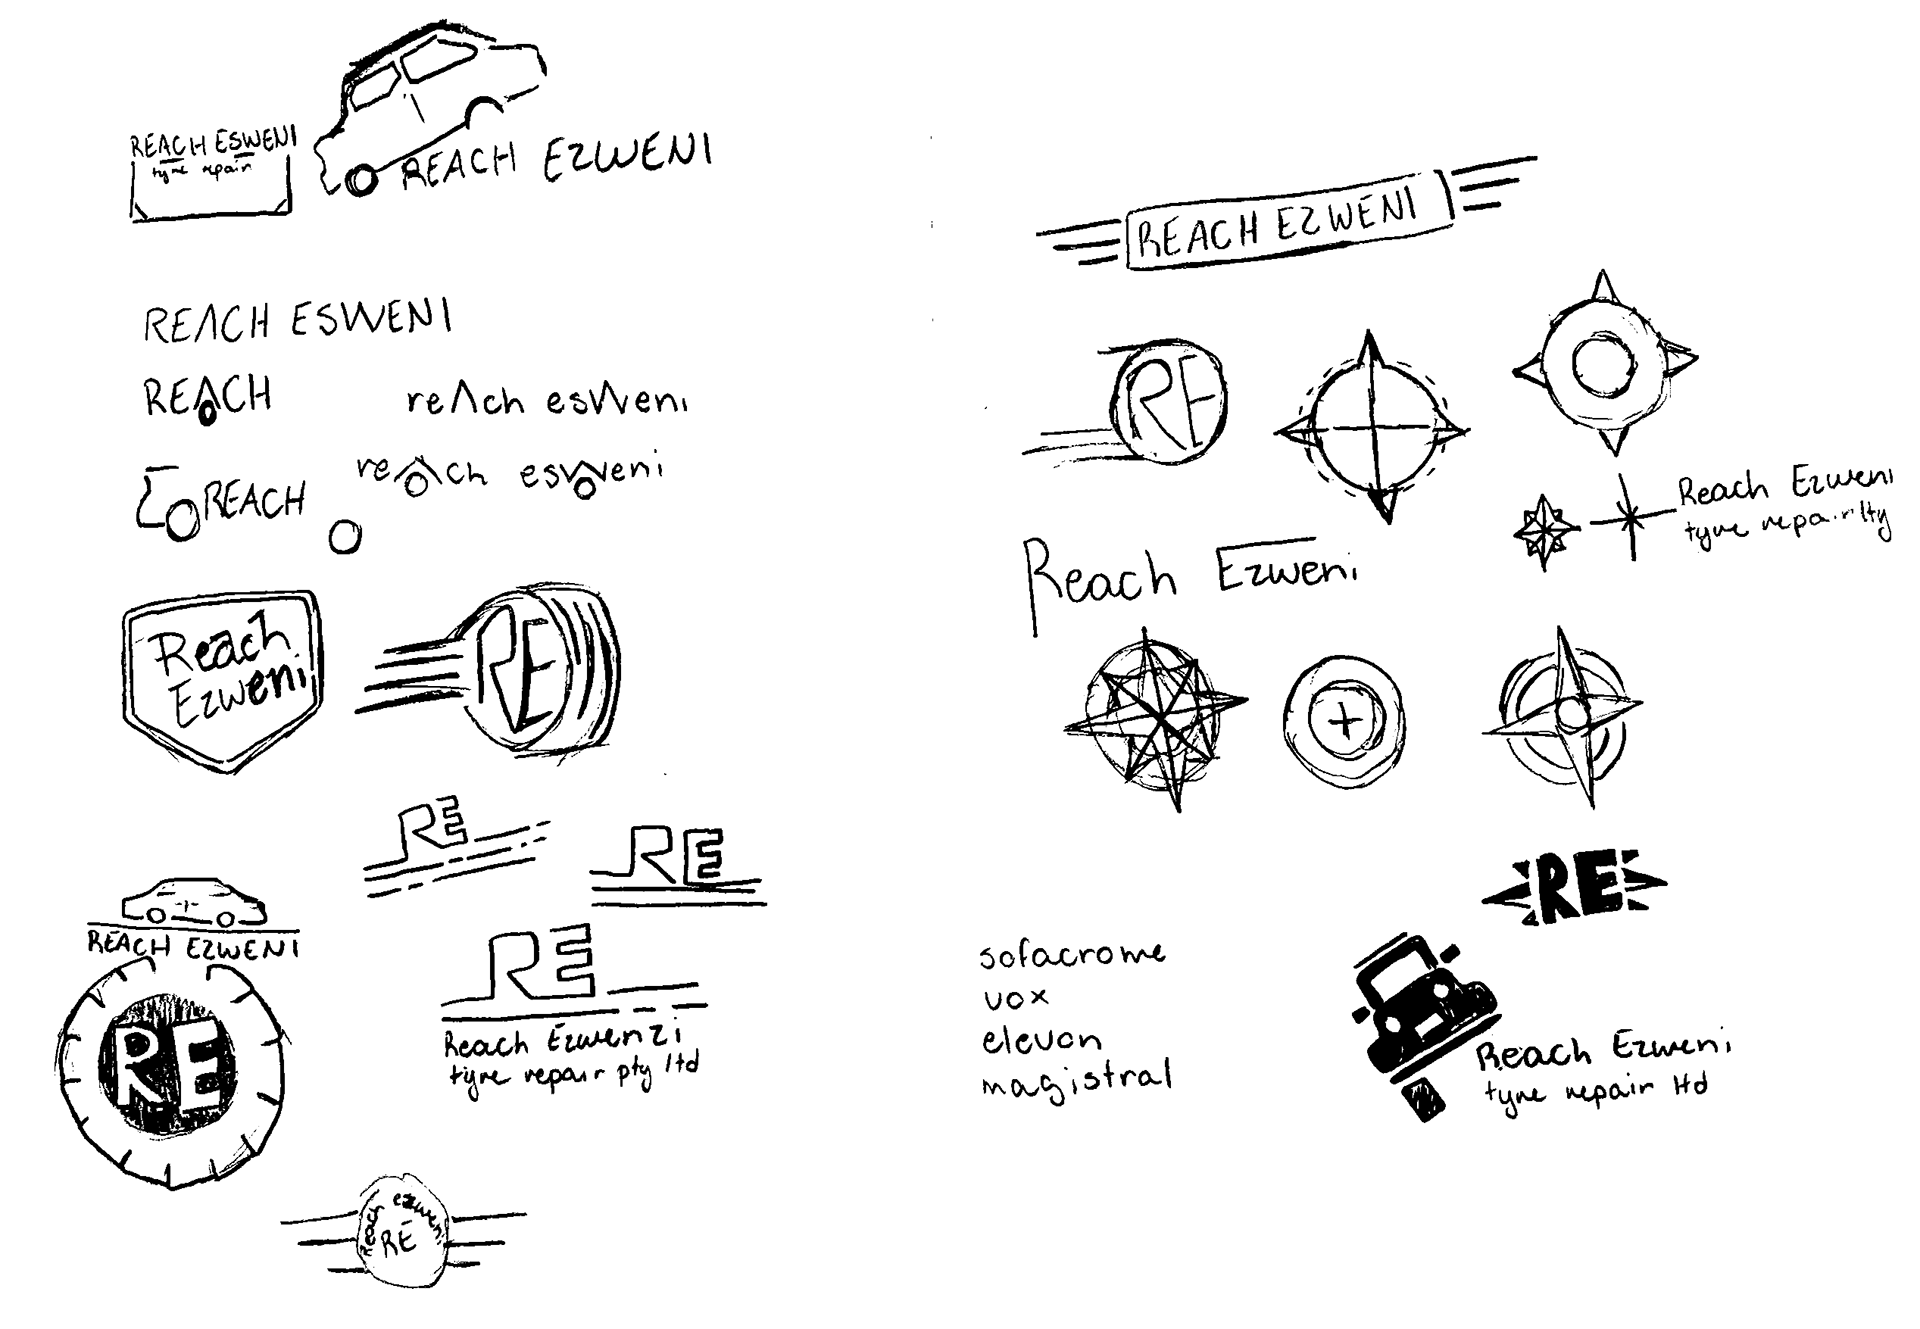 REACH ESWENI
tyre repair
REACH EZWENI
REACH ESWENI
REACH
reach esweni
REACH
reach esweni
Reach
Ezweni
RE
RE
RE
REACH EZWENI
RE
RE
Reach Ezwenzi
tyre repair pty ltd
Reach ezweni
RE
REACH EZWENI
RE
Reach Ezweni
tyre repair lty
Reach Ezweni
RE
sofacrome
vox
elevon
magistral
Reach Ezweni
tyre repair ltd